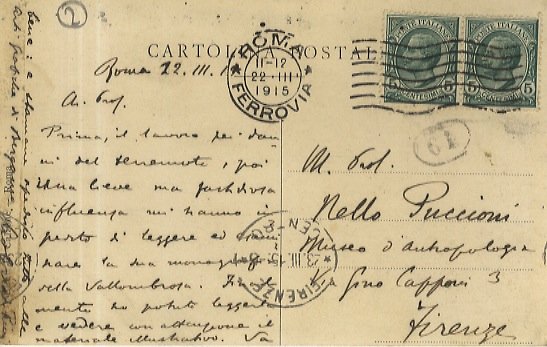 CARTOLINA POSTALE
ROMA
11-12
22 III
1915
FERROVIA
POSTE ITALIANE
CENTESIMI 5
POSTE ITALIANE
CENTESIMI 5
Roma 22.III.1
Prima, il lavoro pei dan
ni del terremoto, poi
una breve ma fastidiosa
influenza mi hanno im
pedito di leggere ed esami
nare la sua monografia
della Vallombrosa. Final
mente ho potuto leggere
e vedere con attenzione il
materiale illustrativo. Va
bene: e
M. Prof.
Nello Puccioni
Museo d'Antropologia
Via Gino Capponi 3
Firenze
FIRENZE
III.15
2